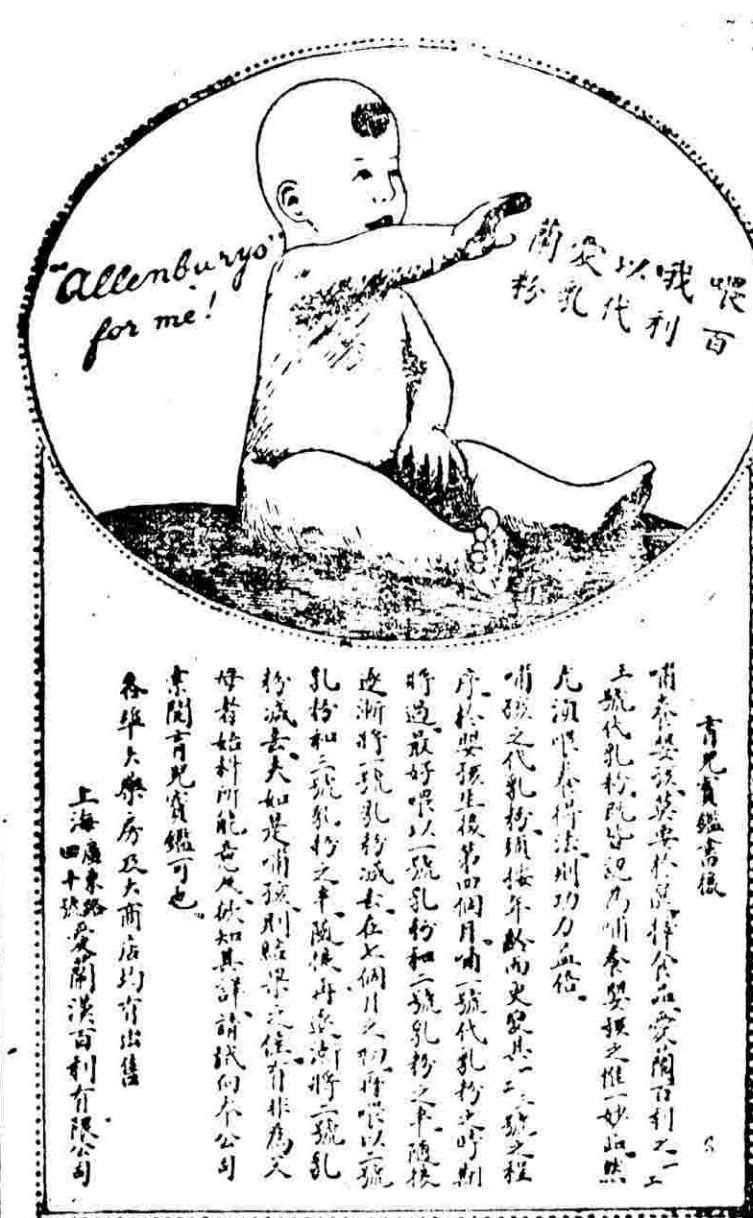 "Allenburys"
for me!
喂哦以愛蘭
百利代乳粉
育兒寶鑑書樣
哺養嬰孩莫要於選擇食品、愛蘭百利之一二
三號代乳粉、既皆認為哺養嬰孩之惟一妙品、然
尤須喂養得法、則功力益倍。
哺孩之代乳粉、須按年齡而更變其一二三號之程
序、於嬰孩生後第四個月、哺一號代乳粉之時期
將過、最好喂以一號乳粉和二號乳粉之半、隨後
逐漸將一號乳粉減去、在七個月之初、再喂以二號
乳粉和三號乳粉之半、隨後再逐漸將二號乳
粉減去、夫如是哺孩、則結果之佳、有非為父
母者始料所能意及、欲知其詳、請試向本公司
索閱育兒寶鑑可也。
各埠大藥房及大商店均有出售
上海廣東路四十號愛蘭漢百利有限公司